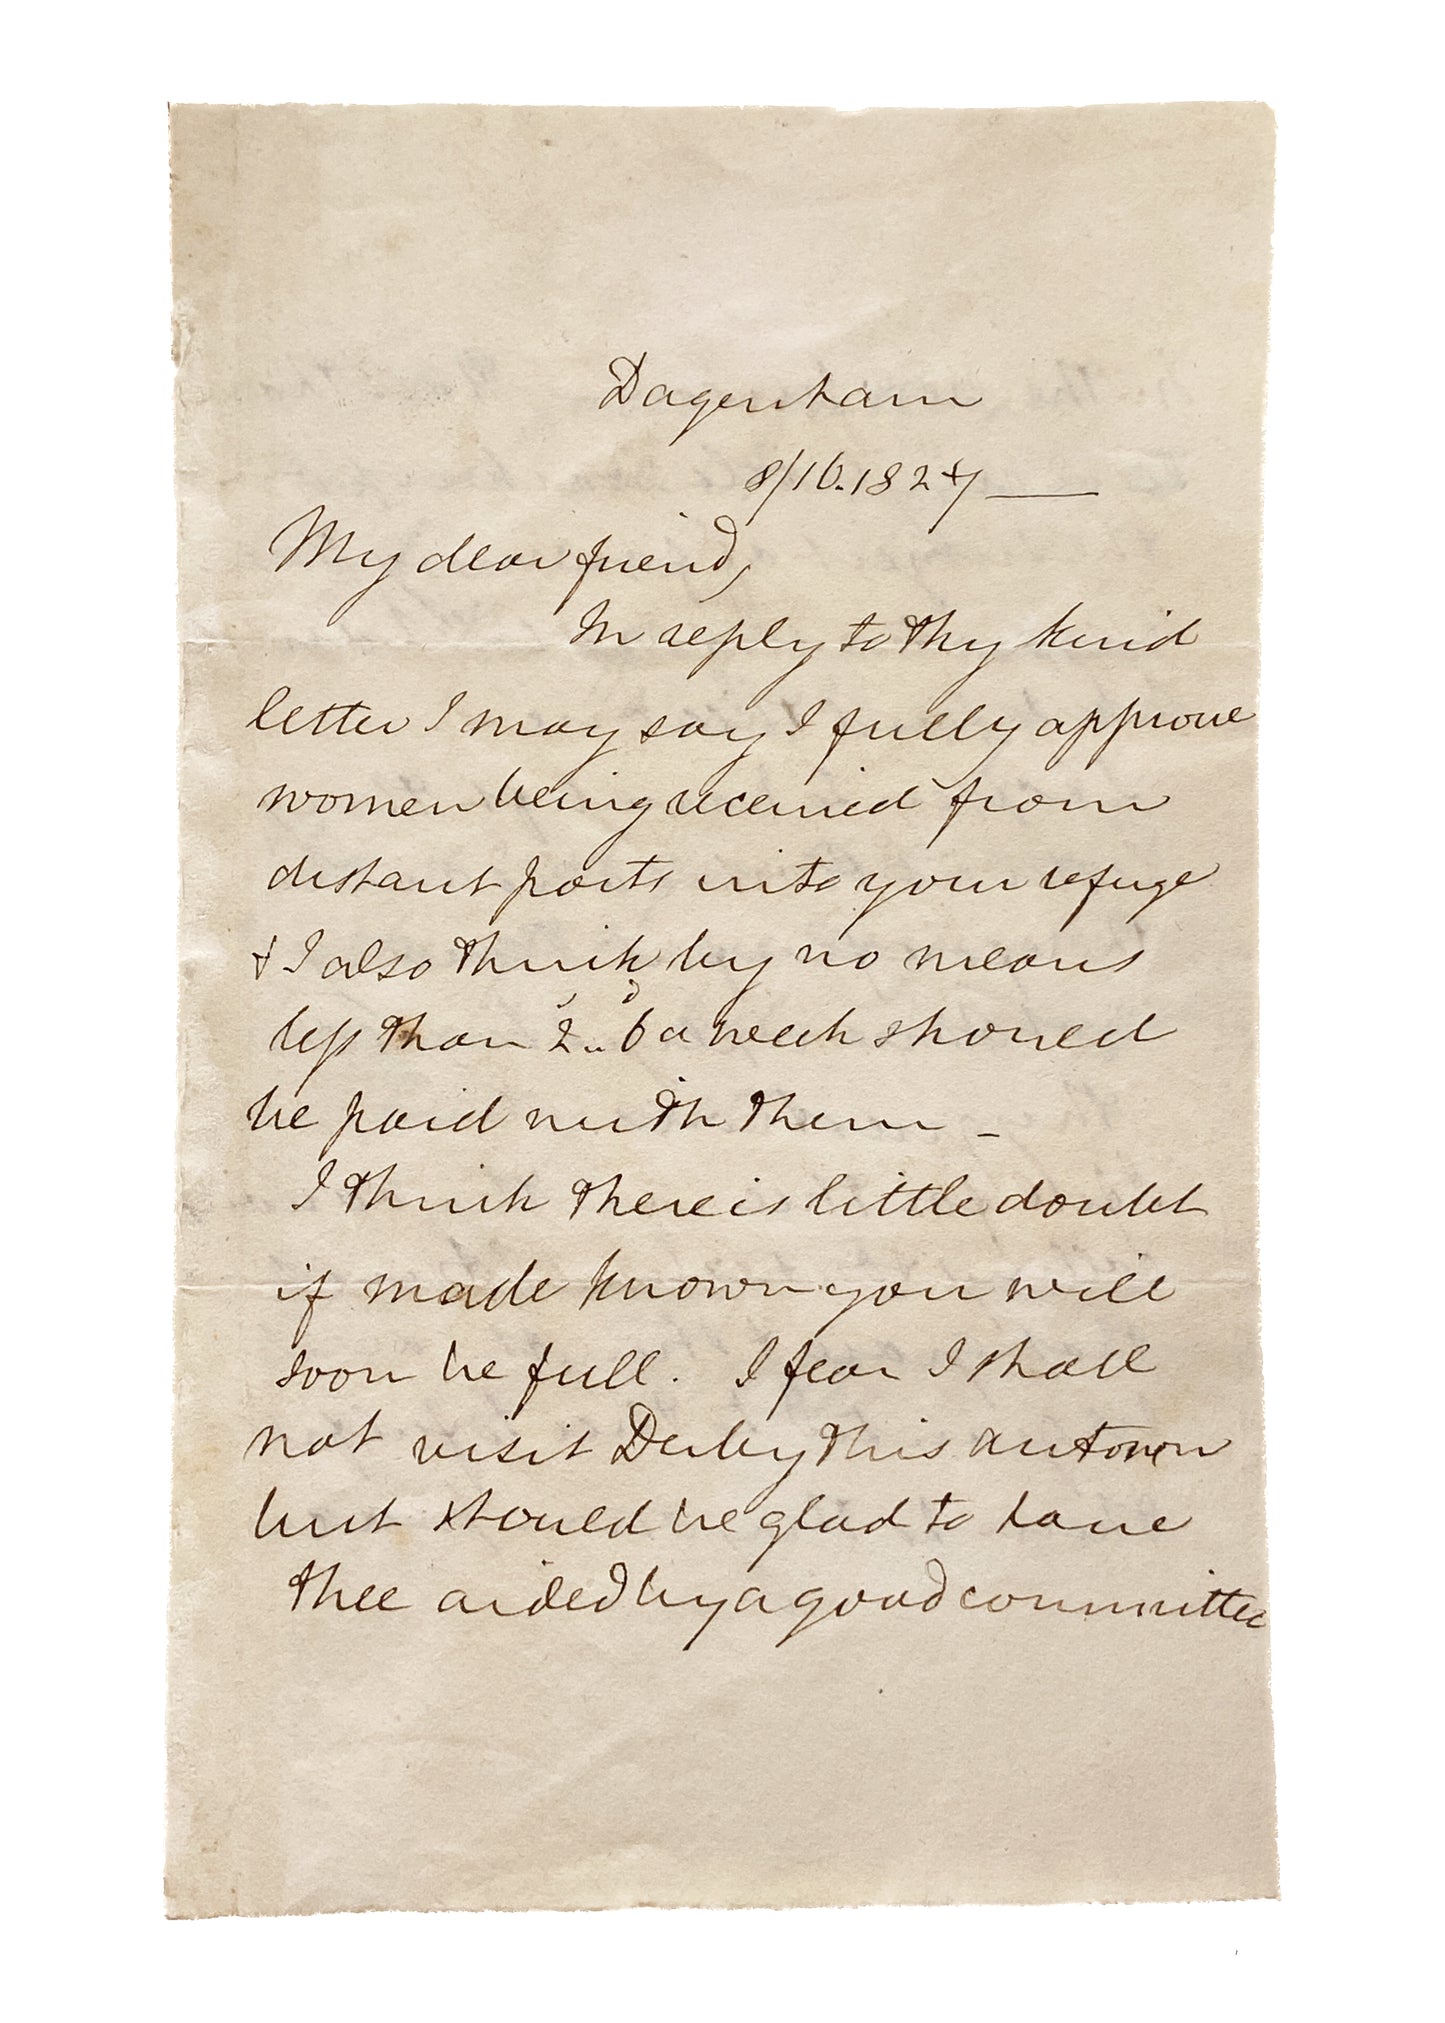 Dagenham
8/10.1827
My dear friend,
In reply to thy kind
letter I may say I fully approve
women being received from
distant parts into your refuge
& I also think by no means
less than 2s..6d a week should
be paid with them –
I think there is little doubt
if made known you will
soon be full. I fear I shall
not visit Derby this autumn
but should be glad to have
thee aided by a good committee